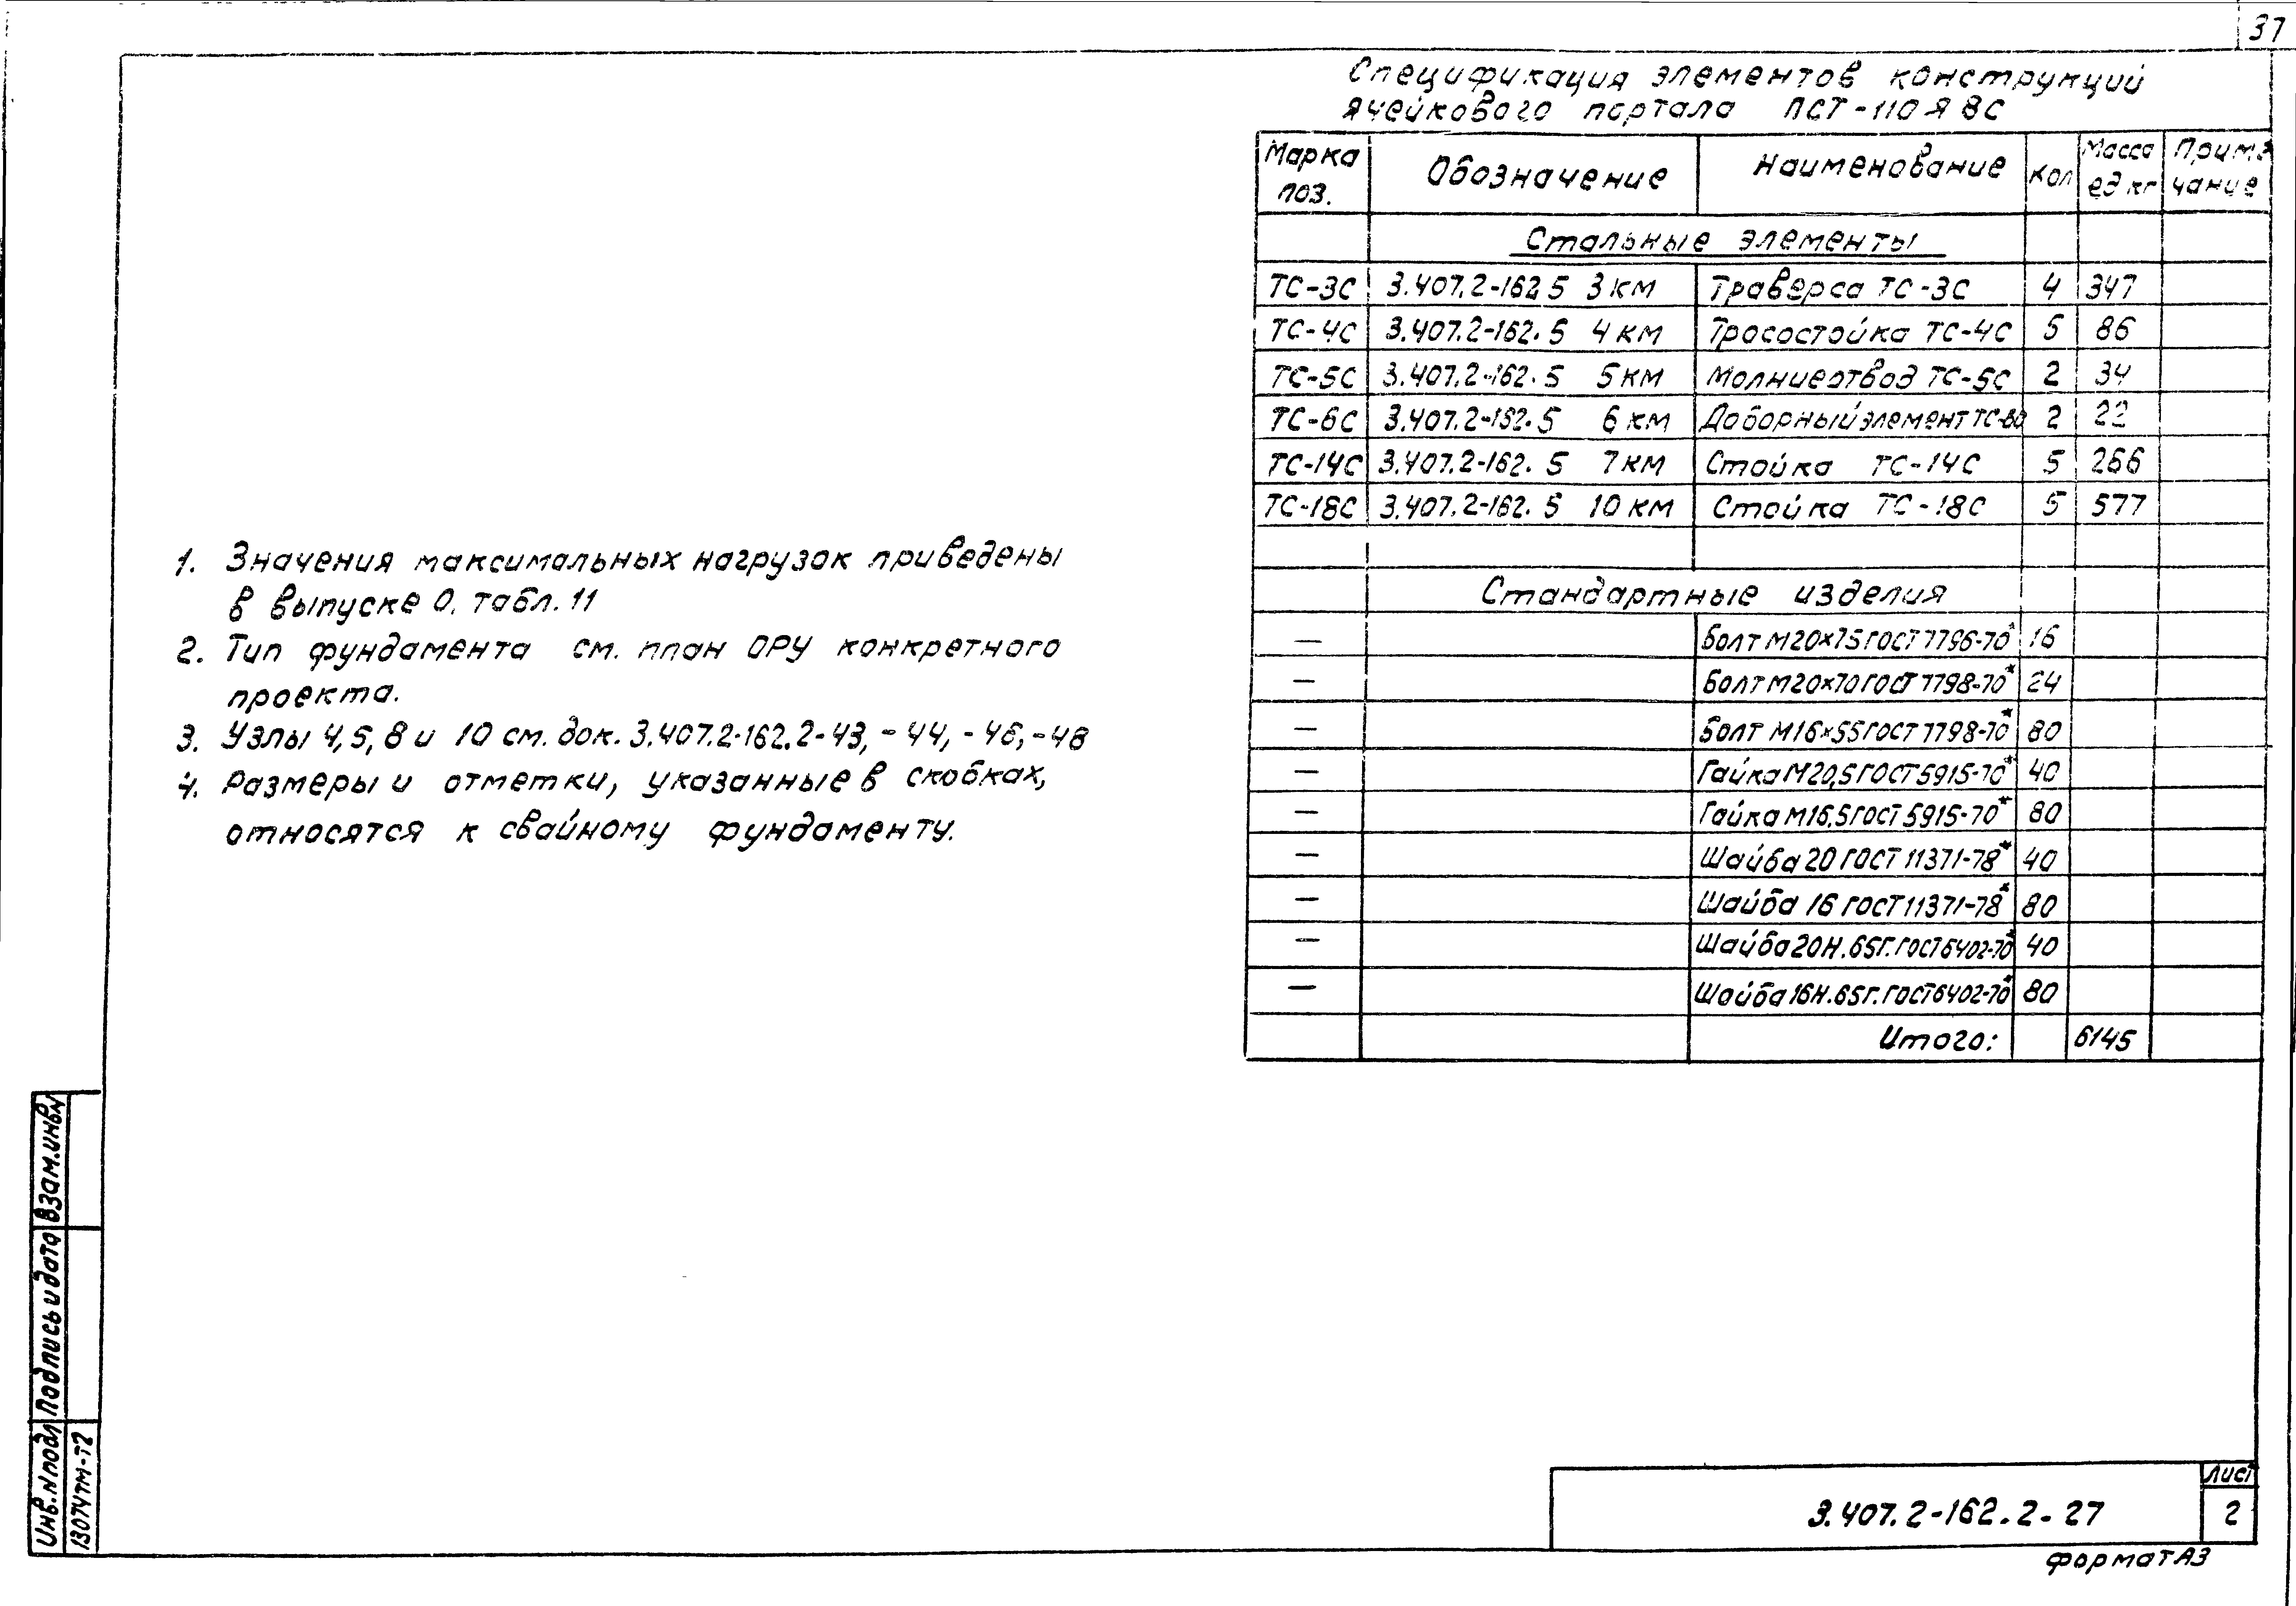 37
Спецификация элементов конструкций
ячейкового портала ПСТ-110Я8С
Марка поз. | Обозначение | Наименование | Кол | Масса ед кг | Примечание
Стальные элементы
ТС-3С | 3.407.2-162.5 3км | Траверса ТС-3С | 4 | 347
ТС-4С | 3.407.2-162.5 4км | Тросостойка ТС-4С | 5 | 86
ТС-5С | 3.407.2-162.5 5км | Молниеотвод ТС-5С | 2 | 34
ТС-6С | 3.407.2-162.5 6км | Доборный элемент ТС-6С | 2 | 22
ТС-14С | 3.407.2-162.5 7км | Стойка ТС-14С | 5 | 266
ТС-18С | 3.407.2-162.5 10км | Стойка ТС-18С | 5 | 577
Стандартные изделия
— | Болт М20×75 ГОСТ 7796-70* | 16
— | Болт М20×70 ГОСТ 7798-70* | 24
— | Болт М16×55 ГОСТ 7798-70* | 80
— | Гайка М20,5 ГОСТ 5915-70* | 40
— | Гайка М16,5 ГОСТ 5915-70* | 80
— | Шайба 20 ГОСТ 11371-78* | 40
— | Шайба 16 ГОСТ 11371-78* | 80
— | Шайба 20Н.65Г. ГОСТ 6402-70* | 40
— | Шайба 16Н.65Г. ГОСТ 6402-70* | 80
Итого: | 6145
1. Значения максимальных нагрузок приведены
в выпуске 0, табл. 11
2. Тип фундамента см. план ОРУ конкретного
проекта.
3. Узлы 4, 5, 8 и 10 см. док. 3.407.2-162.2-43, -44, -46, -48
4. Размеры и отметки, указанные в скобках,
относятся к свайному фундаменту.
Взам.инв№
Подпись и дата
Инв.№ подл
13074тм-т2
3.407.2-162.2-27
Лист
2
Формат А3